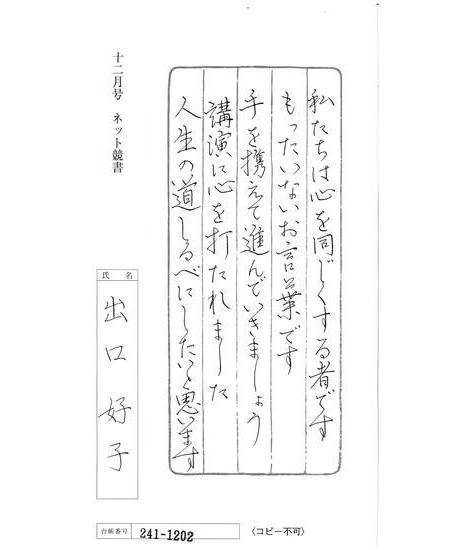 私たちは心を同じくする者です
もったいないお言葉です
手を携えて進んでいきましょう
講演に心を打たれました
人生の道しるべにしたいと思います
十二月号 ネット競書
氏名
出口 好子
台帳番号
241-1202
〈コピー不可〉